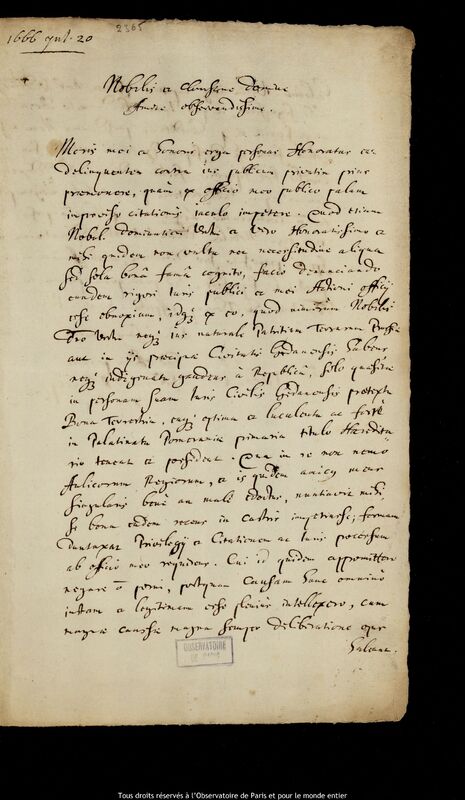 1666 Jul. 20
2365
Nobilis ac Clarissime Domine
Amice observandissime.
Moris mei est honoris ergo personas Honoratas ac
delinquentes contra ius publicum privatim prius
praemonere, quam ex officio meo publico palam
improviso citationis iaculo impetere. Quod etiam
Nobil. Dominationi Vestrae ac Viro Honoratissimo ac
mihi quidem non vultu nec necessitudine aliqua
sed sola bona fama cognito, facio denunciando
eundem rigori Iuris publici ac mei officij
esse obnoxium, idq; ex eo, quod nimirum Nobilis
Dno Vestra neq; ius naturale Terrarum Prussiae
aut in ijs praecipuae Civitatis Gedanensis habens
neq; indigenatu gaudens a Republica, solo
in personam suam Iuris Civilis Gedanensis praetextu
Bona Terrestria, eaq; optima ac luculenta ac forte
in Palatinatu Pomeraniae primaria titulo Haeredita
rio teneat ac possideat. Qua in re non nemo
Aulicorum Regiorum, ac is quidem amicus meus
singularis bene an male edoctus, nuntiavit mihi
se bona eadem recens in castris impetrasse; formam
duntaxat Privilegij ac Citationem ac Iuris processum
ab officio meo requirens. Cui id quidem
negare non potui, postquam Causam hanc omnino
iustam ac legitimam esse plenius intellexero, cum
magnae caussae magna semper deliberatione opus
habeant.
OBSERVATOIRE
DE PARIS
Tous droits réservés à l'Observatoire de Paris et pour le monde entier